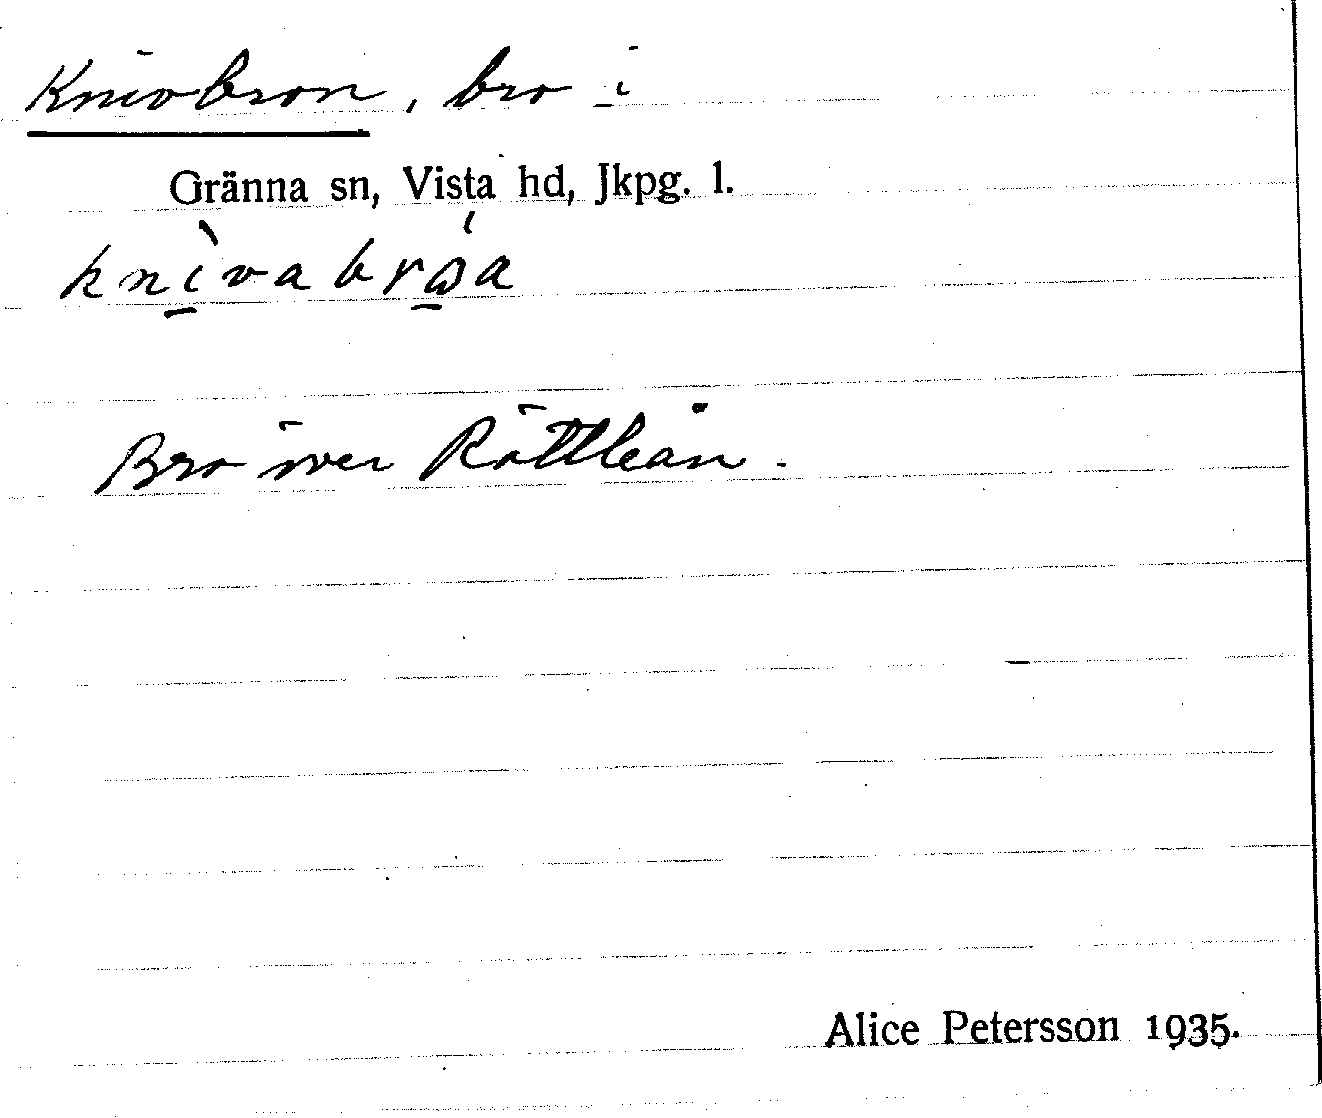 Knivbron, bro i
Gränna sn, Vista hd, Jkpg. l.
knìvabrὼa
Bro över Röttleån.
Alice Petersson 1935.